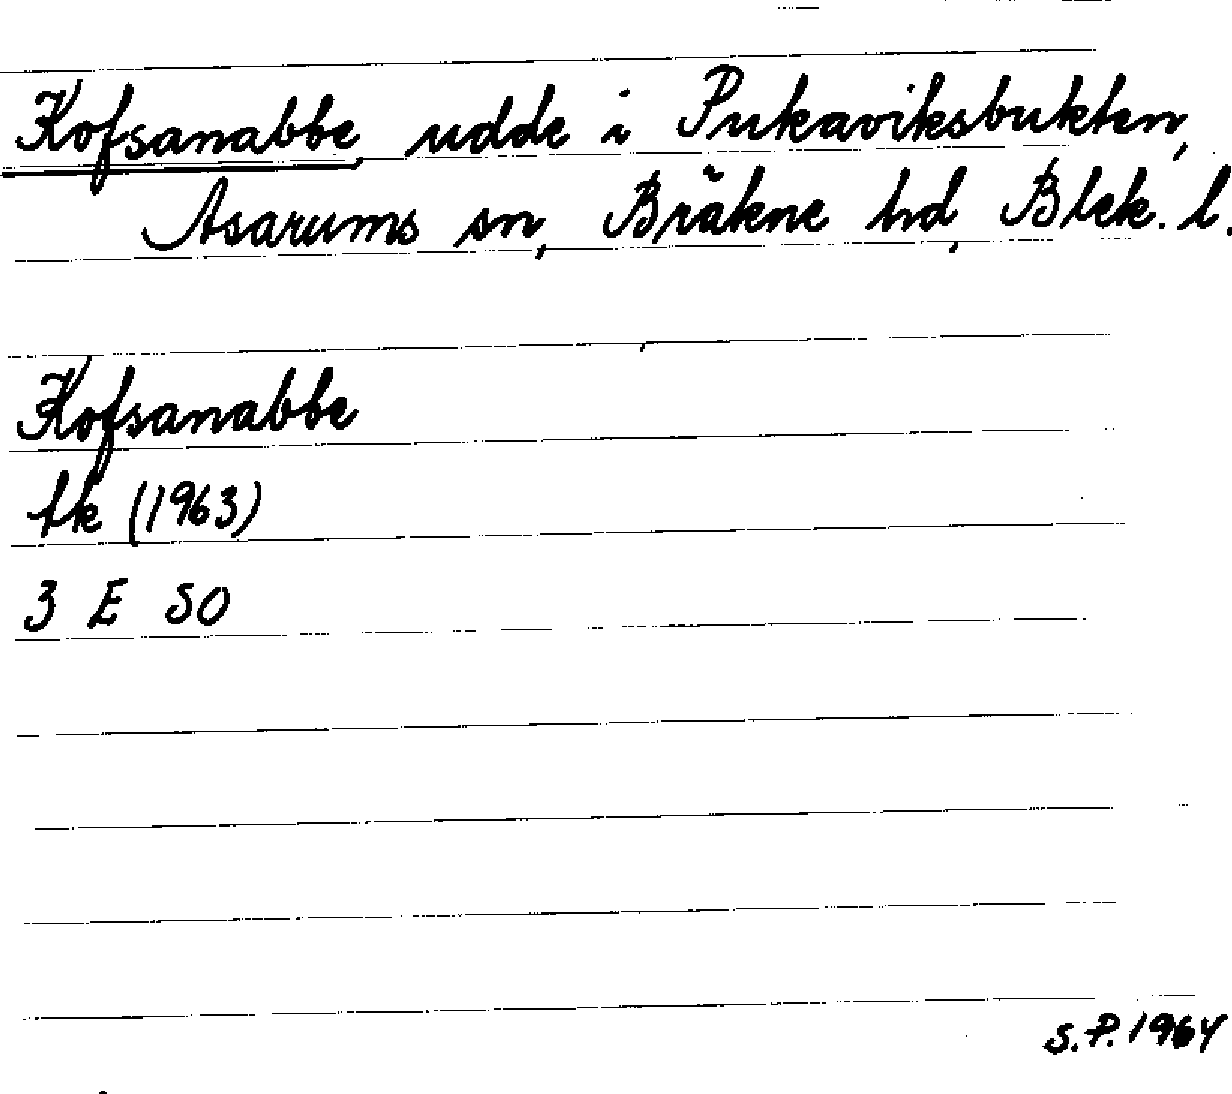 Kofsanabbe udde i Pukaviksbukten,
Asarums sn, Bräkne hd, Blek. l.
Kofsanabbe
tk (1963)
3 E SO
S.P. 1964